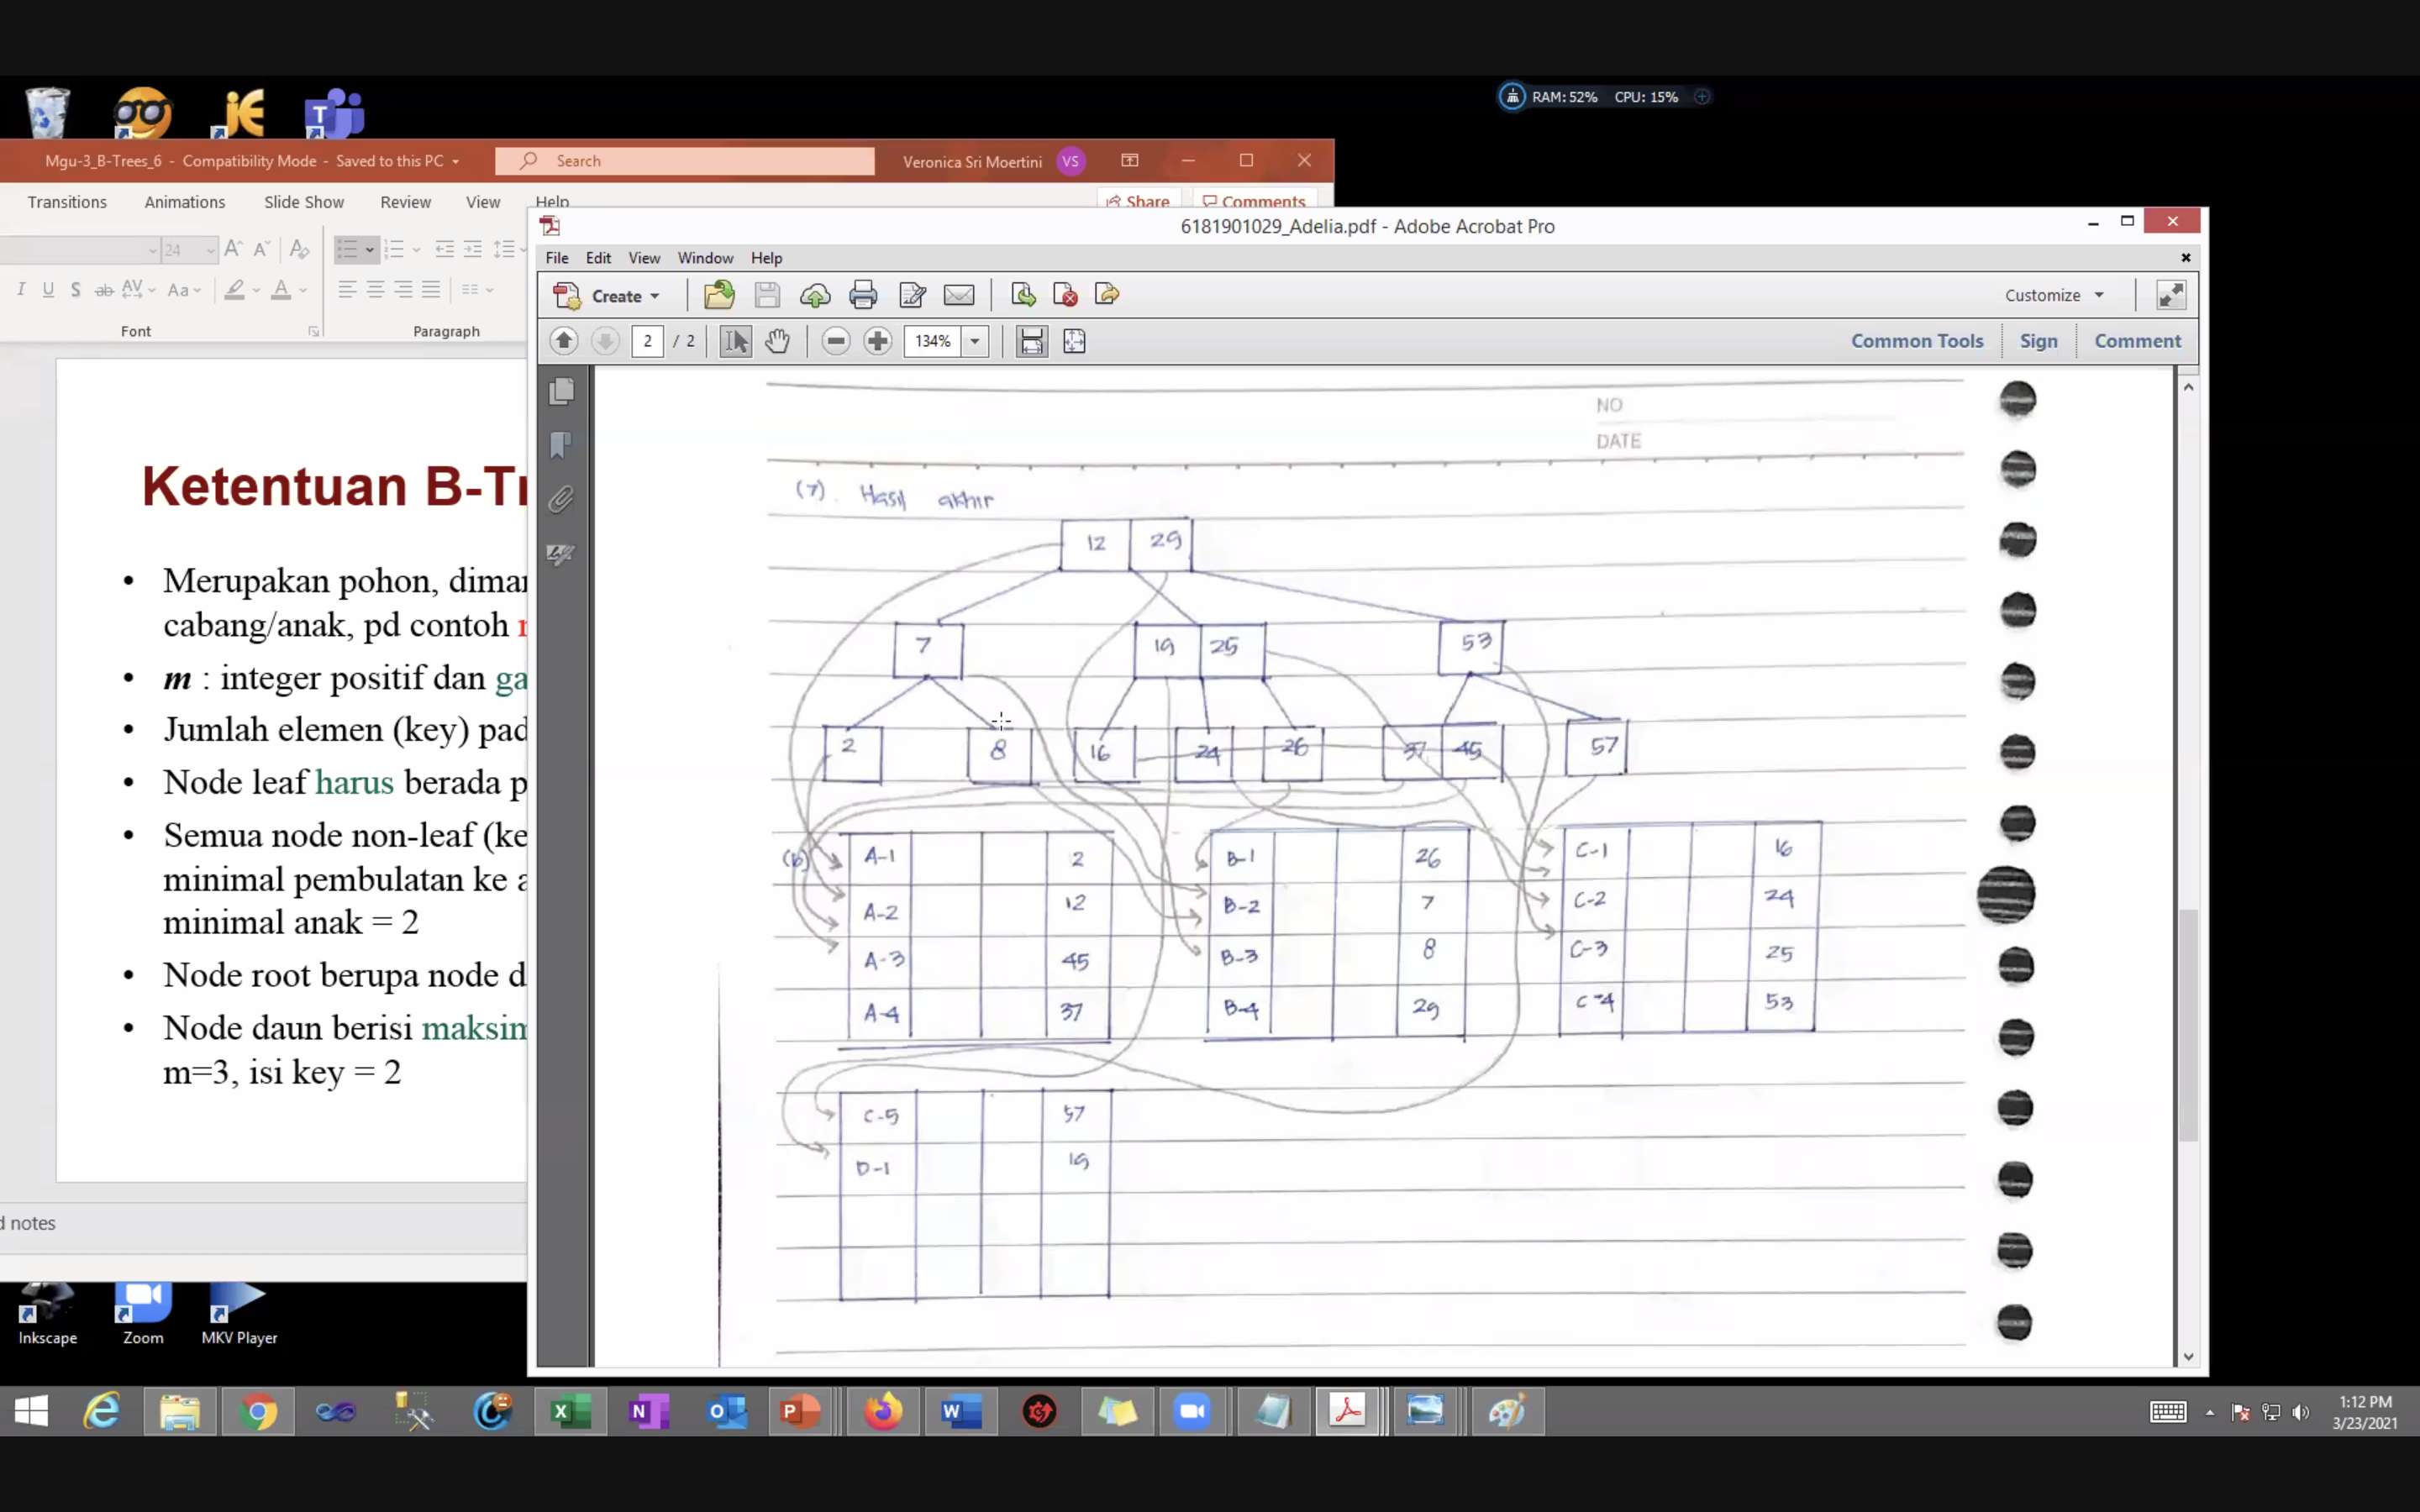 RAM: 52% CPU: 15%
Mgu-3_B-Trees_6 - Compatibility Mode - Saved to this PC
Search
Veronica Sri Moertini VS
Transitions Animations Slide Show Review View Help
Share Comments
24
Font
Paragraph
Ketentuan B-Tr
• Merupakan pohon, diman
cabang/anak, pd contoh
• m : integer positif dan ga
• Jumlah elemen (key) pad
• Node leaf harus berada p
• Semua node non-leaf (ke
minimal pembulatan ke a
minimal anak = 2
• Node root berupa node d
• Node daun berisi maksim
m=3, isi key = 2
d notes
6181901029_Adelia.pdf - Adobe Acrobat Pro
File Edit View Window Help
Create
Customize
2 / 2
134%
Common Tools Sign Comment
NO
DATE
(7). Hasil akhir
12 29
7 19 25 53
2 8 16 24 26 37 45 57
(b)
A-1 2 B-1 26 C-1 16
A-2 12 B-2 7 C-2 24
A-3 45 B-3 8 C-3 25
A-4 37 B-4 29 C-4 53
C-5 57
D-1 19
Inkscape Zoom MKV Player
1:12 PM
3/23/2021